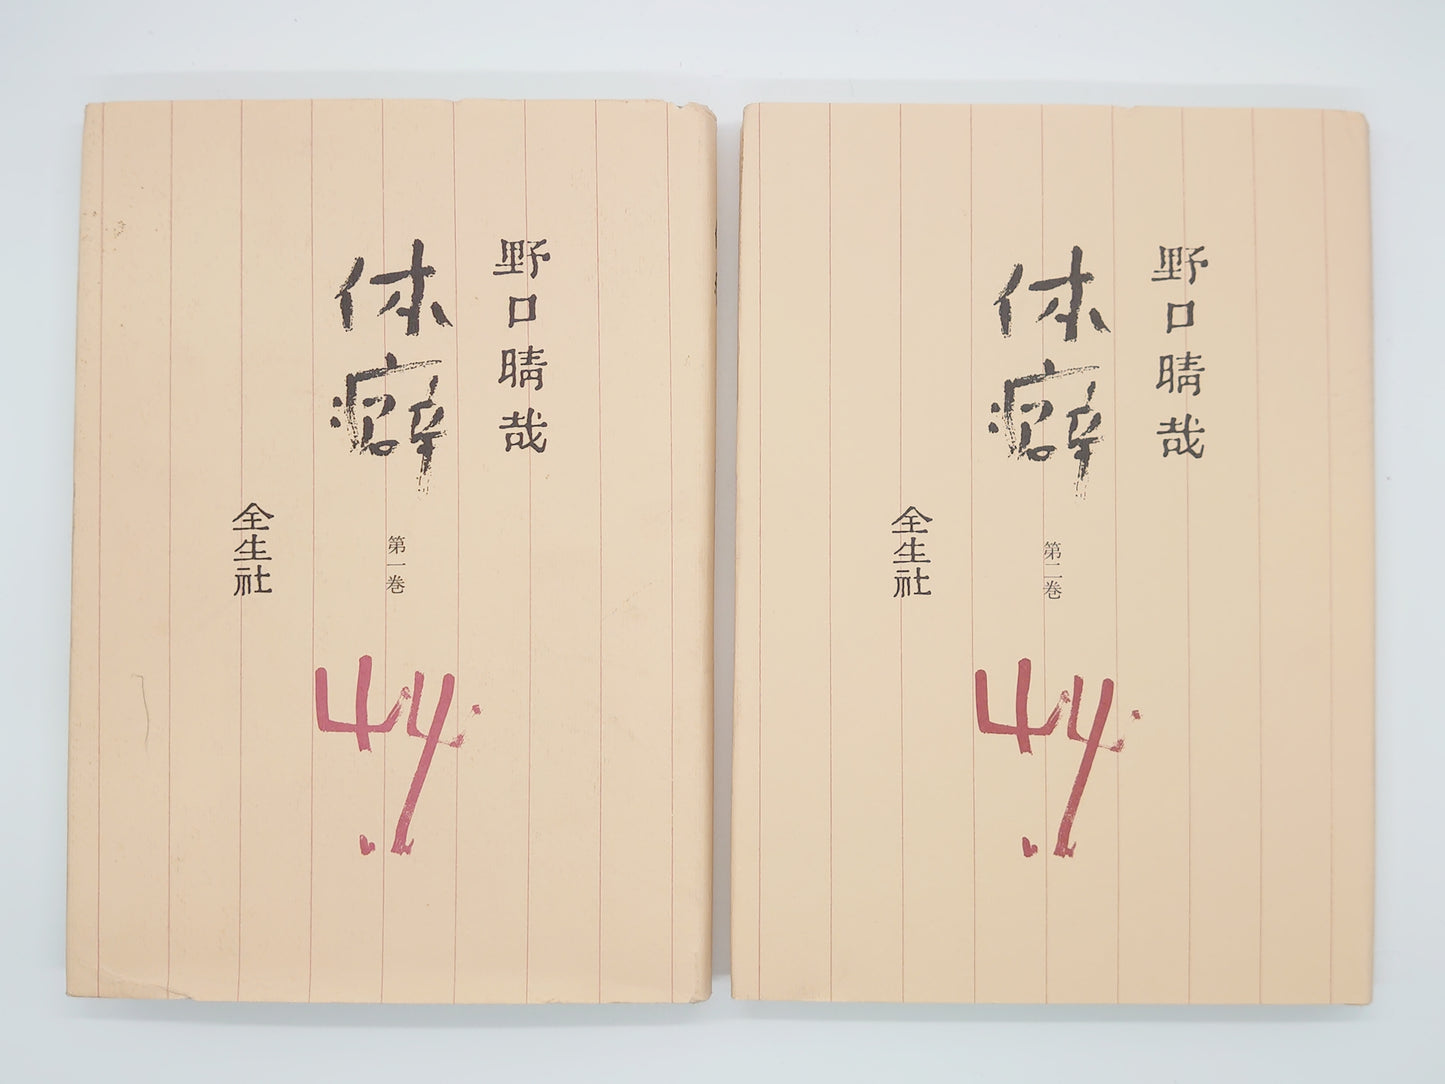 野口晴哉
体癖
第一巻
全生社
野口晴哉
体癖
第二巻
全生社